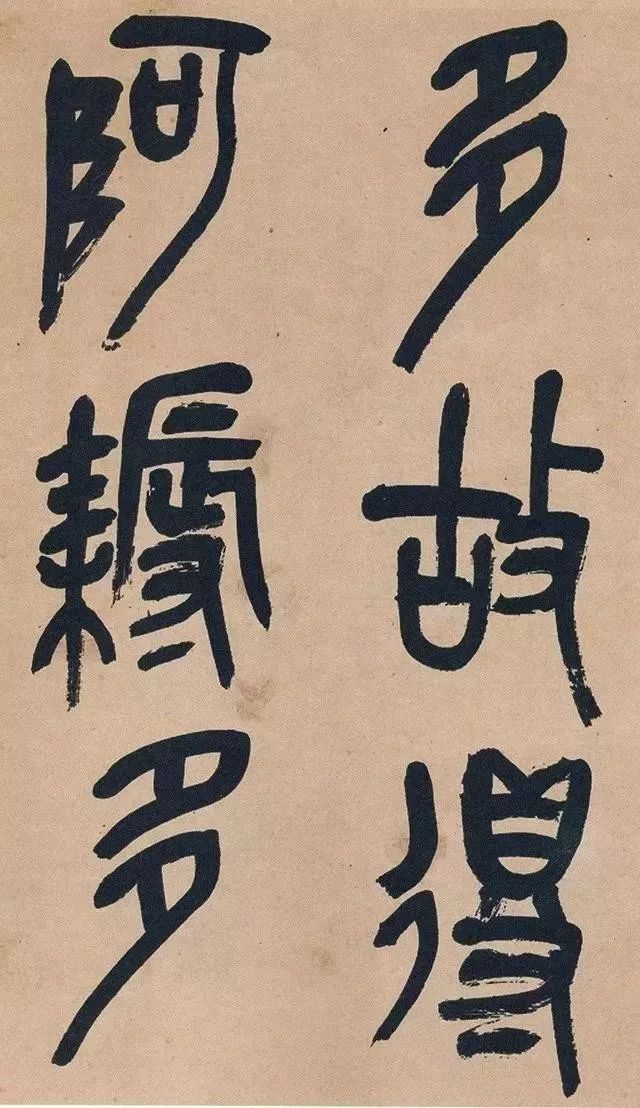 多故得
阿耨多